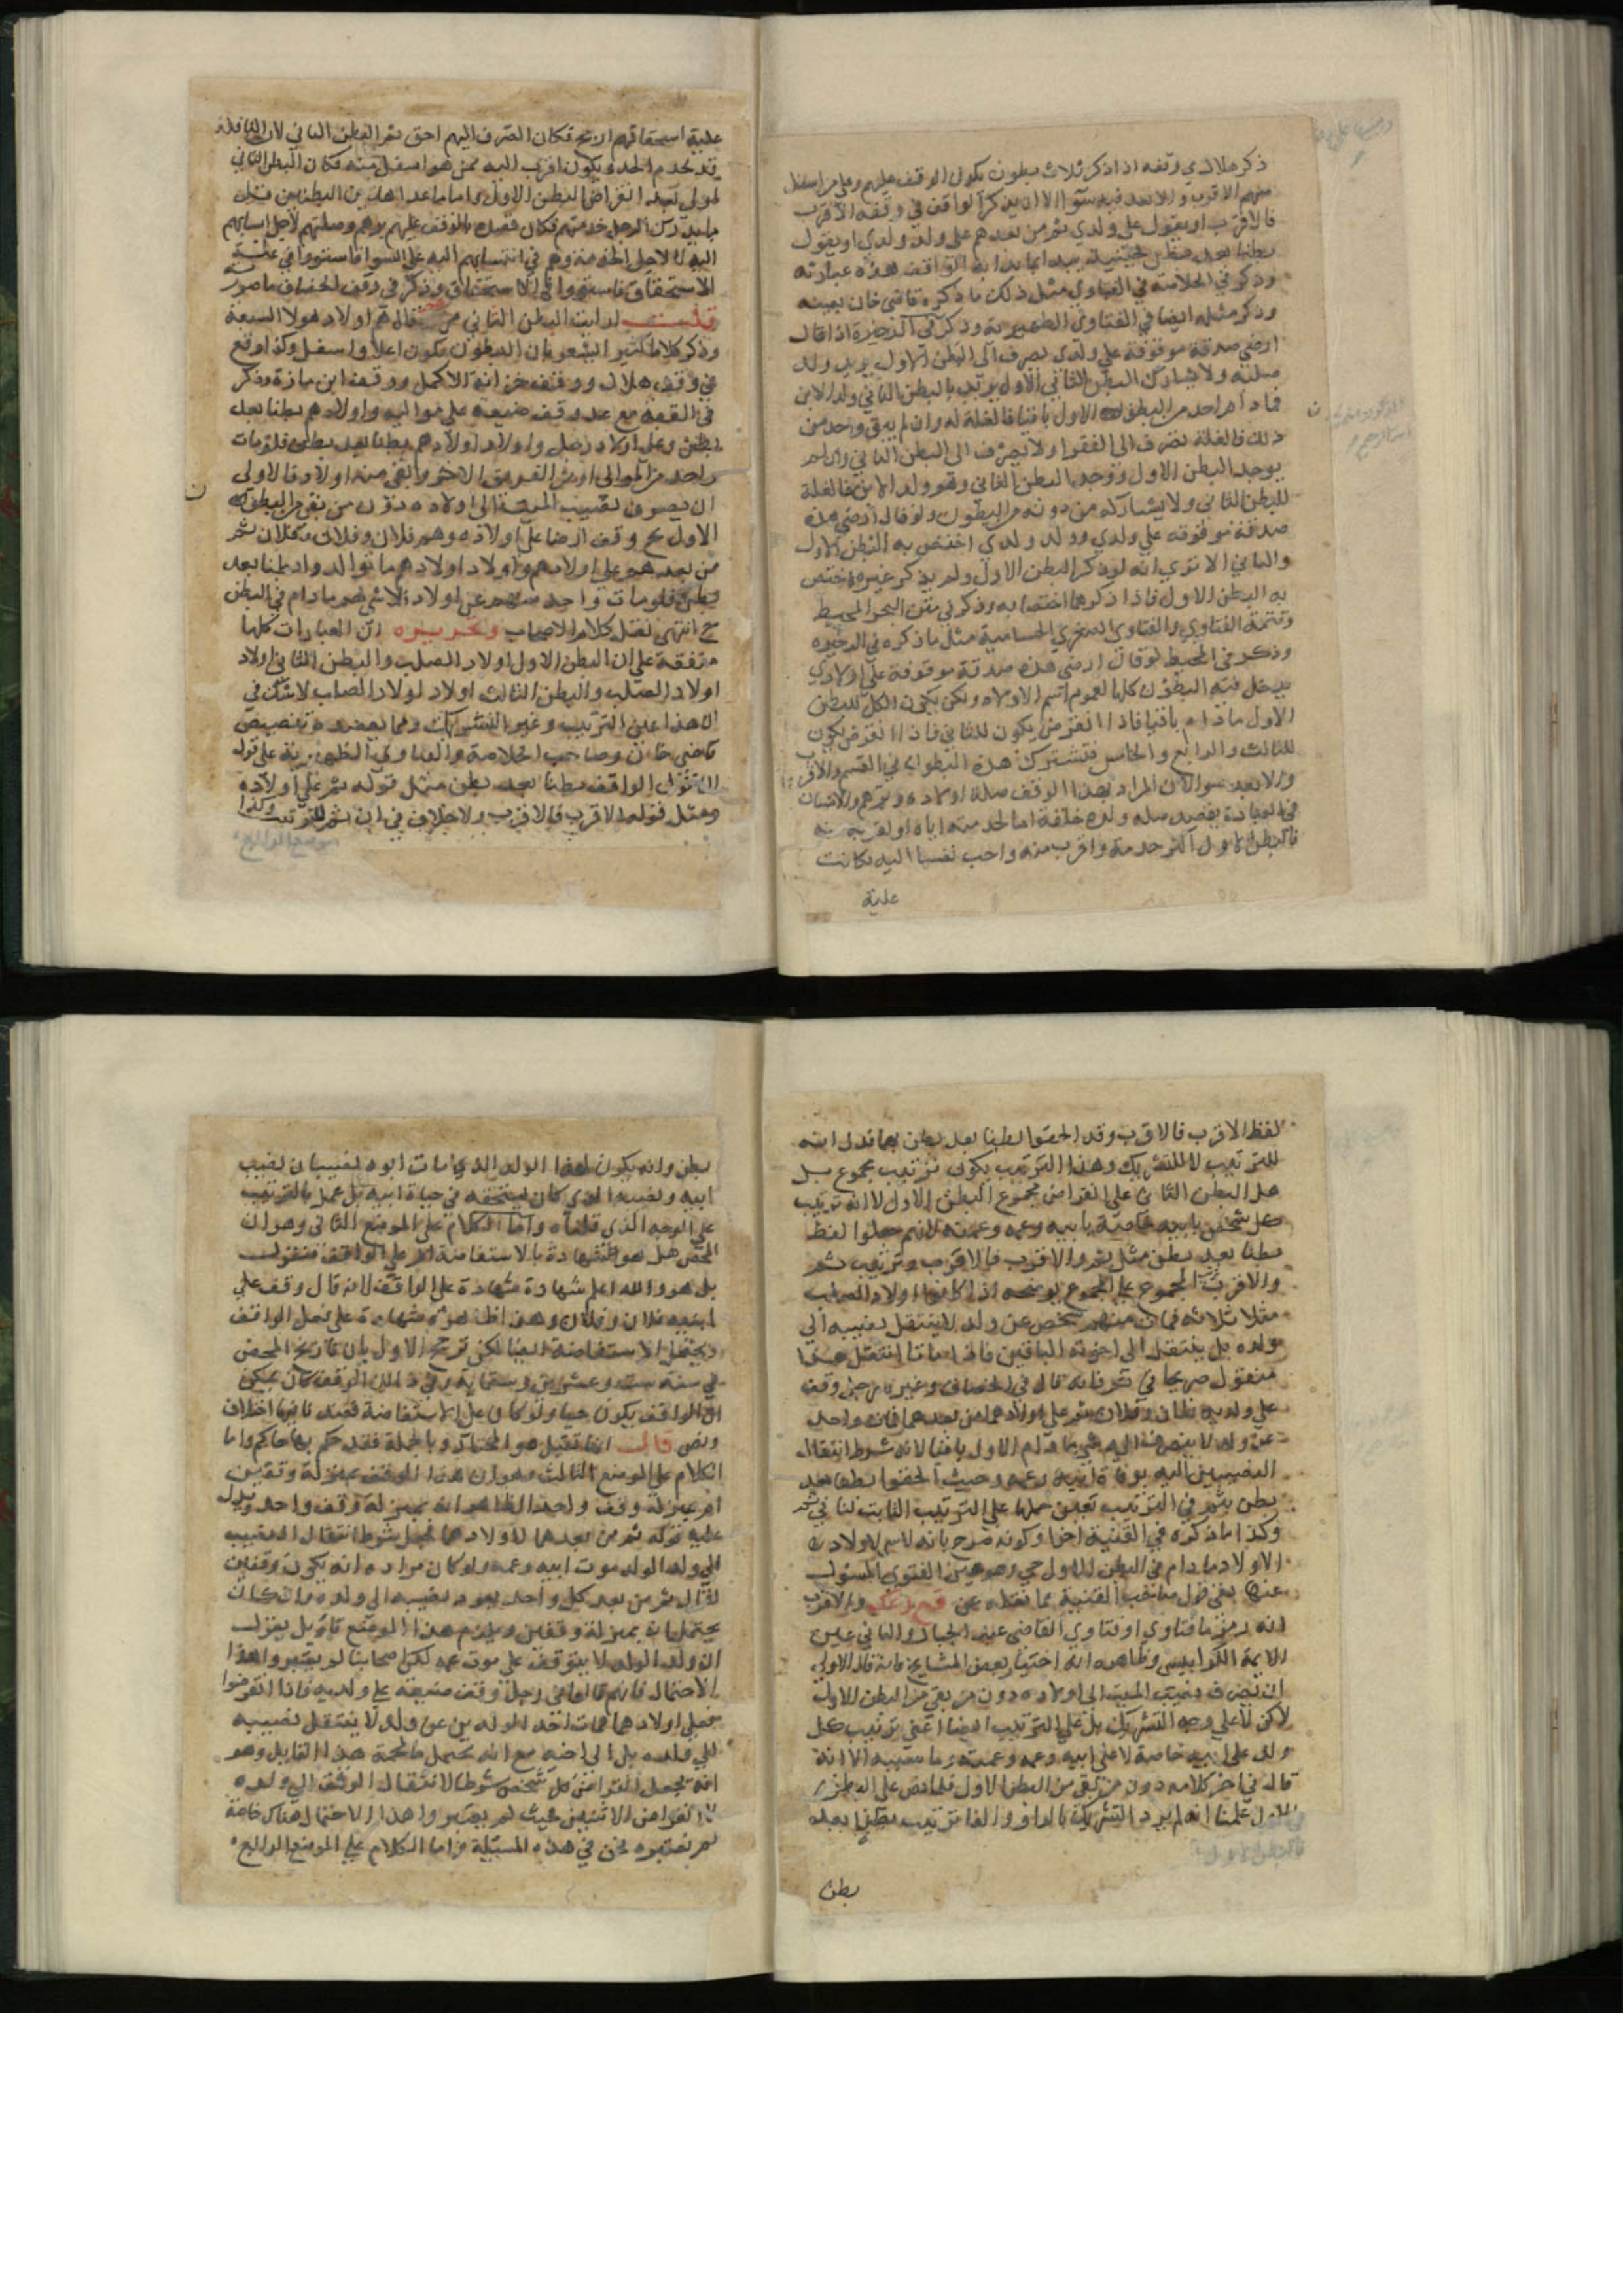 ذكر هلال في وقفه اذا ذكر ثلاث بطون يكون الوقف عليهم وعلى من اسفل
منهم الاقرب والابعد فيه سوا الا ان يذكر الواقف في وقفه الاقرب
فالاقرب او يقول على ولدي ثم من بعدهم على ولد ولدي او يقول
بطنا بعد بطن فحينئذ يبدا بما بدا به الواقف هذه عبارته
وذكر في الخلاصة في الفتاوي مثل ذلك ما ذكره قاضي خان بعينه
وذكر مثله ايضا في الفتاوى الظهيرية وذكر في الذخيرة اذا قال
ارضي صدقة موقوفة على ولدي يصرف الى البطن الاول يريد ولد
صلبه ولا يشارك البطن الثاني الاول يريد بالبطن الثاني ولد الابن
فما دام احد من البطن الاول باقيا فالغلة له وان لم يبق واحد من
ذلك فالغلة تصرف الى الفقرا ولا يصرف الى البطن الثاني وان لم
يوجد البطن الاول ووجد البطن الثاني وهو ولد الابن فالغلة
للبطن الثاني ولا يشاركه من دونه من البطون ولو قال ارضي هذه
صدقة موقوفة على ولدي وولد ولدي اختص به البطن الاول
والثاني الا ترى انه لو ذكر البطن الاول ولم يذكر غيره اختص
به البطن الاول فاذا ذكرهما اختصا به وذكر في متن البحر المحيط
وتتمة الفتاوي والفتاوى الصغرى الحسامية مثل ما ذكره في الذخيره
وذكر في المحيط لو قال ارضي هذه صدقة موقوفة على اولادي
يدخل فيه البطون كلها لعموم اسم الاولاد ولكن يكون الكل للبطن
الاول ما دام باقيا فاذا انقرض يكون للثاني فاذا انقرض يكون
للثالث والرابع والخامس فتشترك هذه البطون في القسم والاقرب
والابعد سوا لان المراد بهذا الوقف صلة اولاده وبرهم والانسان
في العادة يقصد صلة ولده خلفة اما لخدمته اياه او لقربه منه
فالبطن الاول اكثر خدمة واقرب منه واحب نسبا اليه فكانت
علية
علية استحقاقهم ارجح فكان الصرف اليهم احق ثم البطن الثاني لان النافلة
قد تخدم الجد ويكون اقرب اليه ممن هو اسفل منه فكان البطن الثاني
اولى بعد انقراض البطن الاول واما ما عدا هذين البطنين من قبل
ما يدرك الرجل خدمتهم فكان قصده بالوقف عليهم برهم وصلتهم لاجل انتسابهم
اليه لا لاجل الخدمة وهم في انتسابهم اليه على السوا فاستووا في علية
الاستحقاق فاستووا في الاستحقاق وذكر في وقف الخصاف ما صورته
قلت ارايت البطن الثاني من هم قال هم اولاد هولا السبعة
وذكر كلاما كثيرا يشعر بان البطون يكون اعلا واسفل وكذا وقع
في وقف هلال ووقف خزانة الاكمل ووقف ابن مازة وذكر
في القنية مع عد وقف ضيعه على مواليه واولادهم بطنا بعد
بطن وعلى اولاد رجل واولاد اولادهم بطنا بعد بطن فلومات
واحد من الموالي او من الفريق الاخر وبقي منه اولاد فالاولى
ان يصرف نصيب الميت الى اولاده دون من بقي من البطن
الاول بح وقف ارضا على اولاده وهم فلان وفلان وفلان ثم
من بعدهم على اولادهم واولاد اولادهم ما توالدوا بطنا بعد
بطن فلو مات واحد منهم عن اولاد لا شي لهم ما دام في البطن
حي انتهى نقل كلام الاصحاب وتحريره ان العبارات كلها
متفقة على ان البطن الاول اولاد الصلب والبطن الثاني اولاد
اولاد الصلب والبطن الثالث اولاد اولاد اولاد الصلب لا شك في
ان هذا على الترتيب وغير التشريك ومما يعضده تنصيص
قاضي خان وصاحب الخلاصة والفتاوي الظهيرية على قوله
ان قول الواقف بطنا بعد بطن مثل قوله ثم على اولاده
ومثل قوله الاقرب فالاقرب ولا خلاف في ان ثم للترتيب وكذا
لفظ الاقرب فالاقرب وقد الحقوا بطنا بعد بطن بهما فدل انه
للترتيب لا للتشريك وهذا الترتيب يكون ترتيب مجموع بل
هل البطن الثاني على انقراض مجموع البطن الاول لا انه ترتيب
كل شخص بابيه خاصة يا بيه وعمه وعمته لانهم جعلوا لفظ
بطنا بعد بطن مثل ثم والاقرب فالاقرب وترتيب ثم
والاقرب المجموع على المجموع يوضحه اذا كانوا اولاد الصلب
مثلا ثلاثة فمات منهم شخص عن ولد لا ينتقل نصيبه الى
ولده بل ينتقل الى اخوته الباقين فاذا ماتا انتقل هذا
منقول صريحا في ثم فانه قال في الخصاف وغيره رجل وقف
على ولديه فلان وفلان ثم على اولادهما من بعدهما فمات واحد
عن ولد لا يصرف اليه شي ما دام الاول باقيا لانه شرط انتقال
النصيبين اليه بوفاة ابيه وعمه وحيث الحقوا بطنا بعد
بطن بثم في الترتيب تعين حملها على الترتيب الثابت لنا في ثم
وكذا ما ذكره في القنية اخرا وكونه صرح بانه لا شي لاولاد
الاولاد ما دام في البطن الاول حي وهو عين الفتوى المسئول
عنها بقي قول صاحب القنية مما نقله عن مع عك والاقرب
انه رمز ما فتاوي او فتاوي القاضي عبد الجبار والثاني عين
الايمة الكرابيسي وظاهره انه اختيار بعض المشايخ فانه قال الاولى
ان يصرف نصيب الميت الى اولاده دون من بقي من البطن الاول
لاكن لا على وجه التشريك بل على الترتيب ايضا اعني ترتيب كل
ولد على ابيه خاصة لا على ابيه وعمه وعمته وما نسيبه الا انه
قال في اخر كلامه دون من بقي من البطن الاول فلما نص على البطن
الاول علمنا انه لم يرد التشريك بالواو والفا ترتيب بطن بعد
بطن
بطن وانه يكون لهذا الولد الذي مات ابوه نصيبان نصيب
ابيه ونصيبه الذي كان يستحقه في حياة ابيه بل عمل بالترتيب
على الوجه الذي قلناه واما الكلام على الموضع الثاني وهو ان
المحضر هل هو شهادة بالاستفاضة ام على الواقف فنقول
بل هو والله اعلم شهادة شهادة على الواقف لانه قال وقف على
ابنيه فلان وفلان وهذا ظاهره شهادة على فعل الواقف
ويحتمل الاستفاضة ايضا لكن ترجح الاول بان تاريخ المحضر
في سنة ست وعشرين وستماية وفي ذلك الوقف كان يمكن
ان الواقف يكون حيا ولو كان على الاستفاضة فعند قاضيها اختلاف
ونص قالت انها تقبل هو المختار وبالجملة فقد حكم بها حاكم واما
الكلام على الموضع الثالث وهو ان هذا الوقف بمنزلة وقفين
ام بمنزلة وقف واحد الظاهر انه بمنزلة وقف واحد ويدل
عليه قوله ثم من بعدهما لاولادهما فجعل شرط انتقال النصيب
الى ولد الولد موت ابيه وعمه ولو كان مراده انه يكون وقفين
لقال ثم من بعد كل واحد يعود نصيبه الى ولده وان كان
يحتمل انه بمنزلة وقفين ويلزم هذا الموضع تاويل بقول
ان ولد الولد لا يتوقف على موت عمه لكن اصحابنا لم يعتبروا هذا
الاحتمال فانهم قالوا في رجل وقف ضيعته على ولديه فاذا انقرضوا
فعلى اولادهما فمات احد الولدين عن ولد لا ينتقل نصيبه
الى ولده بل الى اخيه مع انه يحتمل ما لمحه هذا القايل وهو
انه يجعل انقراض كل شخص شرطا لانتقال الوقف الى ولده
لا انقراض الاثنين فحيث لم يعتبروا هذا الاحتمال هناك خاصة
لم نعتبره نحن في هذه المسئلة واما الكلام على الموضع الرابع